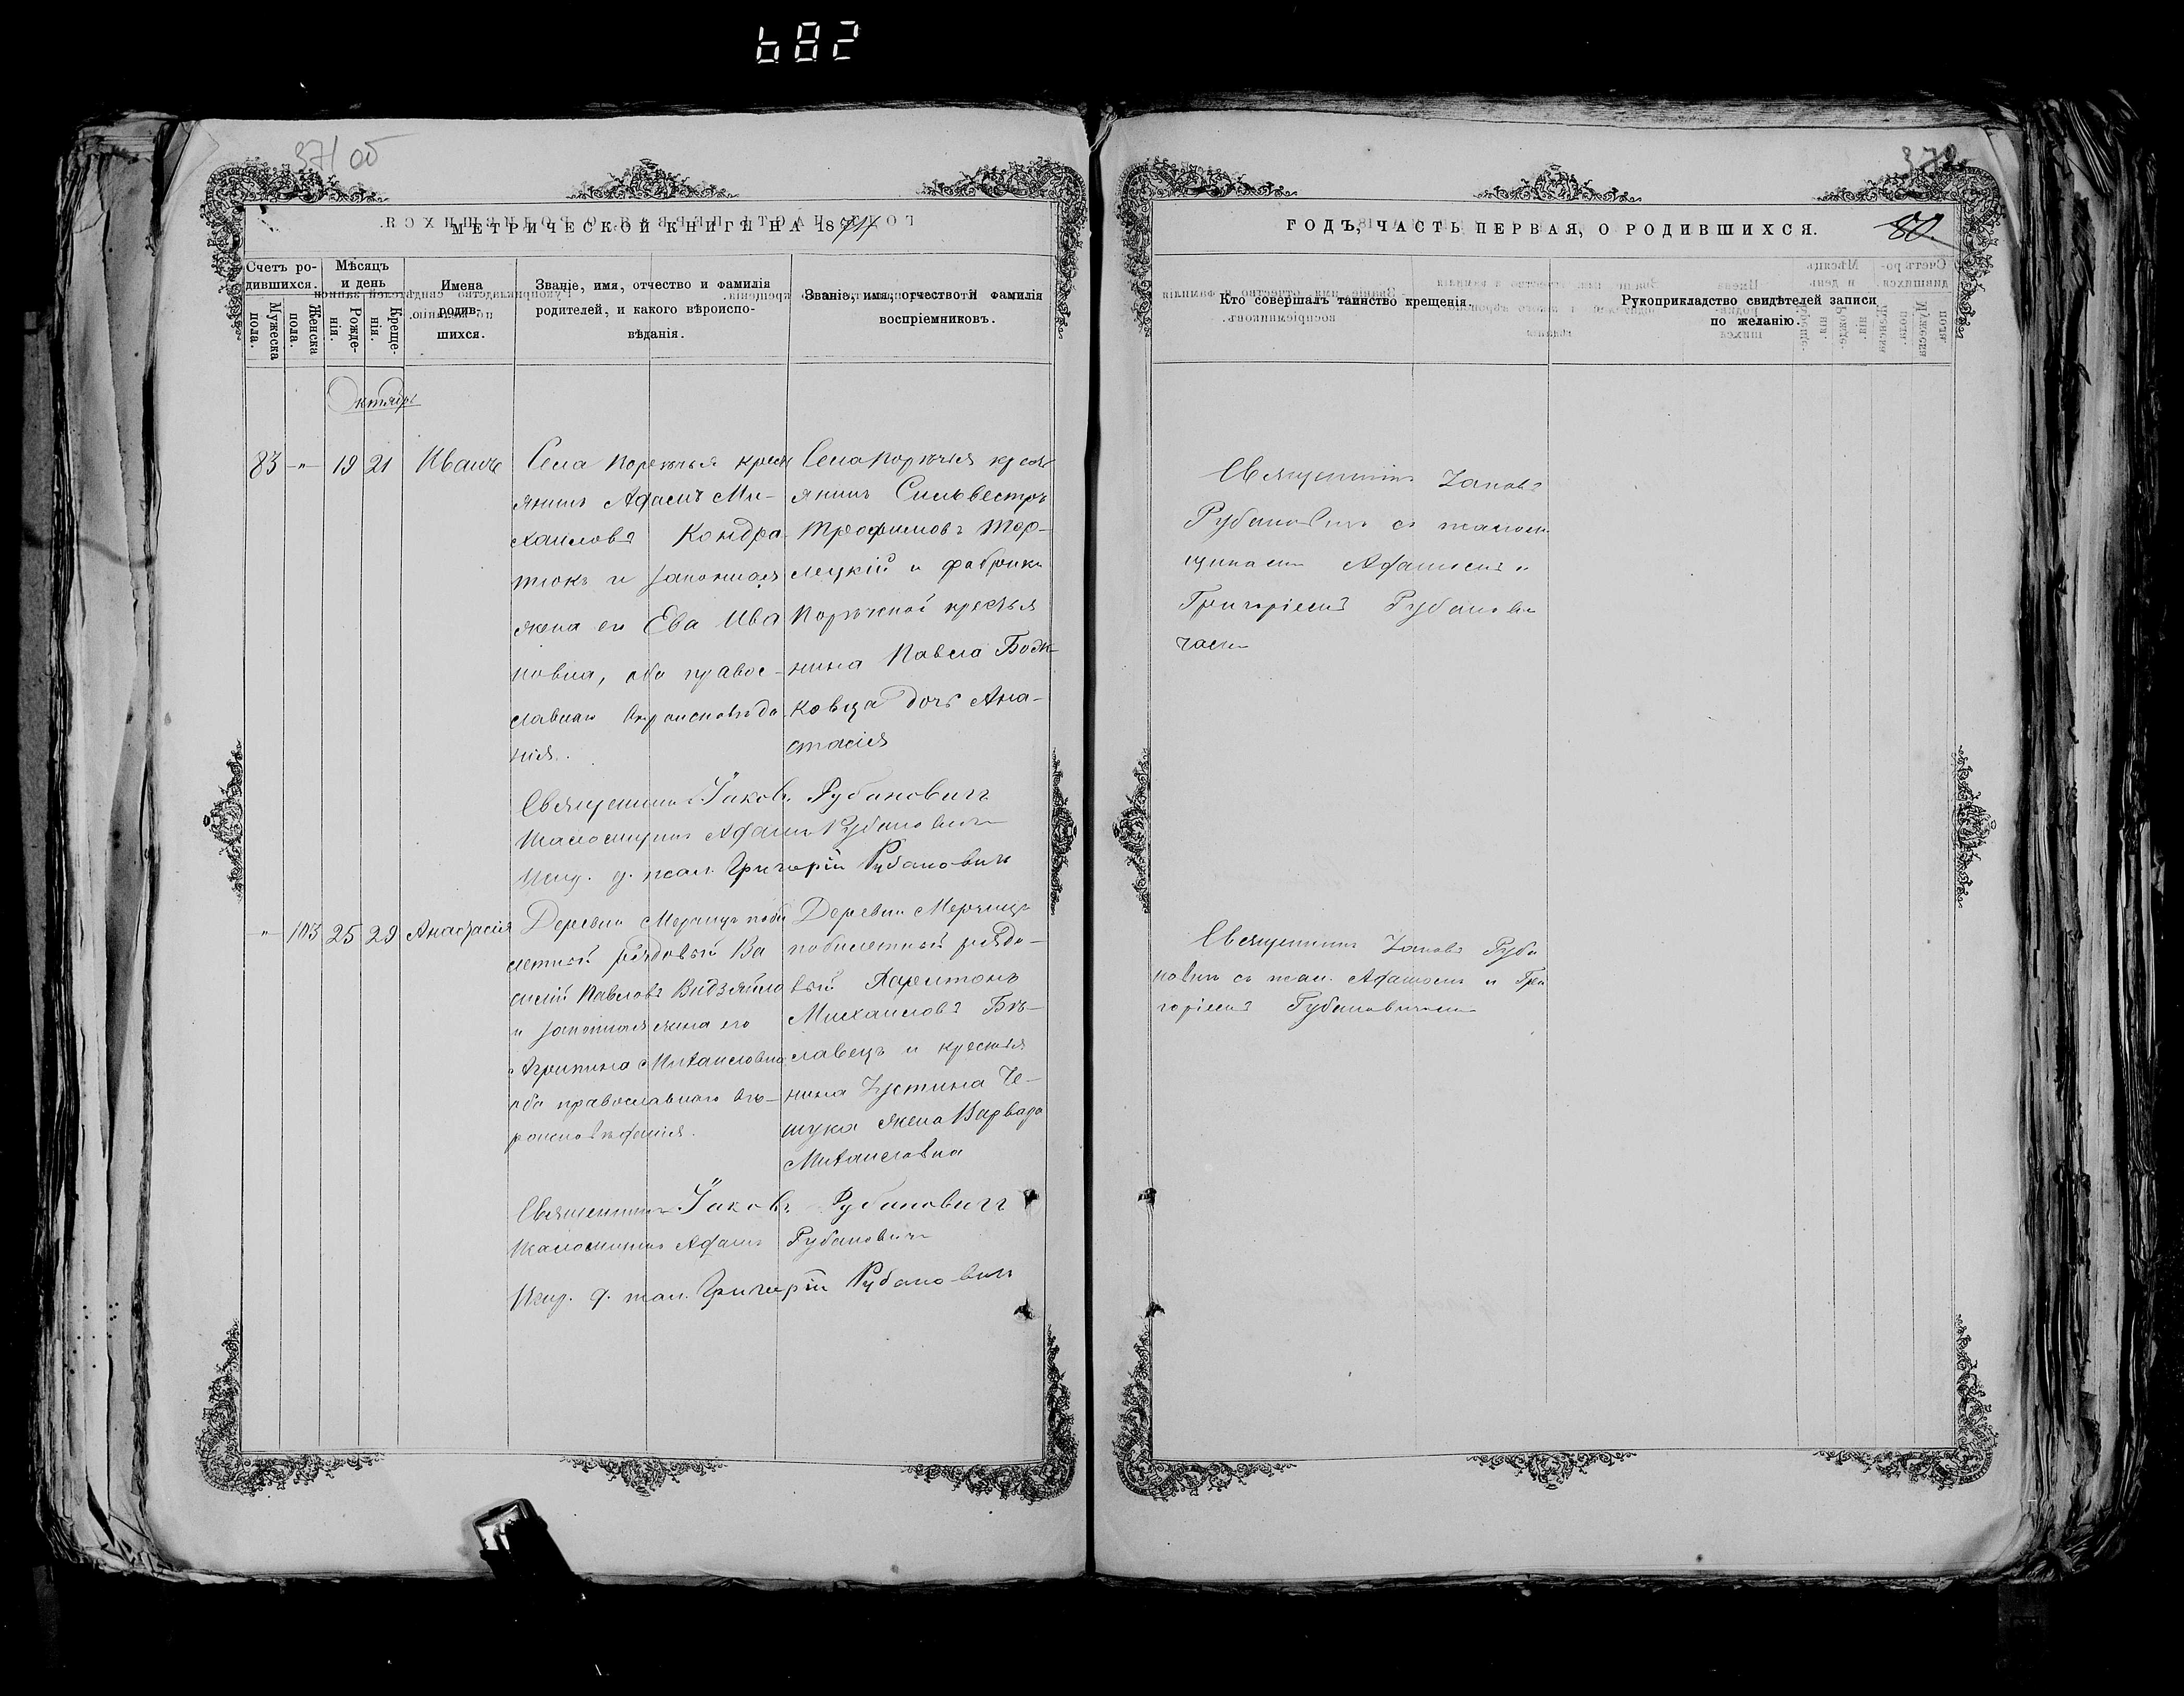 682
371 об
МЕТРИЧЕСКОЙ КНИГИ НА 18
Счетъ ро-
дившихся.
Мужеска
пола.
Женска
пола.
Мѣсяцъ
и день
Рожде-
нія.
Креще-
нія.
Имена
родив-
шихся.
Званіе, имя, отчество и фамилія
родителей, и какого вѣроиспо-
вѣданія.
Званіе, имя, отчество и фамилія
воспріемниковъ.
Октябрь
83 -"- 19 21 Иванъ
Села Порѣчья крест
янинъ Адамъ Ми-
хаиловъ Кондра
тюкъ и законная
жена его Ева Ива
новна, оба правос-
лавнаго вѣроисповѣда
нія.
Село Порѣчья крест
янинъ Сильвестръ
Трофимовъ Тор-
лецкій и фабрики
Порѣчской крестья
нина Павла Бодн-
ковца дочь Ана-
стасія
Священникъ Іаковъ Рубановичъ
Псаломщикъ Адамъ Рубановичъ
Исир. д. псал. Григорій Рубановичъ
-"- 103 25 29 Анастасія
Деревни Мерчицъ поби
летный рядовый Ва
силій Павловъ Видзяйло
и законная жена его
Агрипина Михаиловна
оба православнаго вѣ-
роисповѣданія.
Деревни Мерчицъ
побилетный рядо-
вый Харитонъ
Михаиловъ Бѣ-
лавецъ и крестья
нина Іустина Че-
шука жена Варвара
Михаиловна
Священникъ Іаковъ Рубановичъ
Псаломщикъ Адамъ Рубановичъ
Испр. д. псал. Григорій Рубановичъ
80.
ГОДЪ, ЧАСТЬ ПЕРВАЯ, О РОДИВШИХСЯ.
Кто совершалъ таинство крещенія.
Рукоприкладство свидѣтелей записи
по желанію.
Священникъ Іаковъ
Рубановичъ съ псалом
щиками Адамомъ и
Григоріемъ Рубанови
чами
Священникъ Іаковъ Руба
новичъ съ псал. Адамомъ и Гри
горіемъ Рубановичами